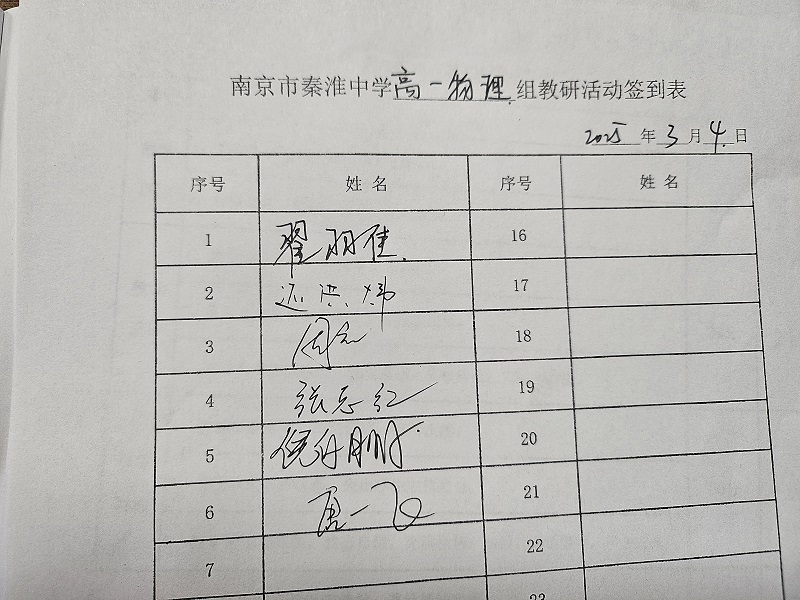 南京市秦淮中学高一物理组教研活动签到表
2025年3月4日
序号 姓名 序号 姓名
1 翟羽佳 16
2 洪炜 17
3 周 18
4 张志红 19
5 倪 20
6 唐一飞 21
7 22
23